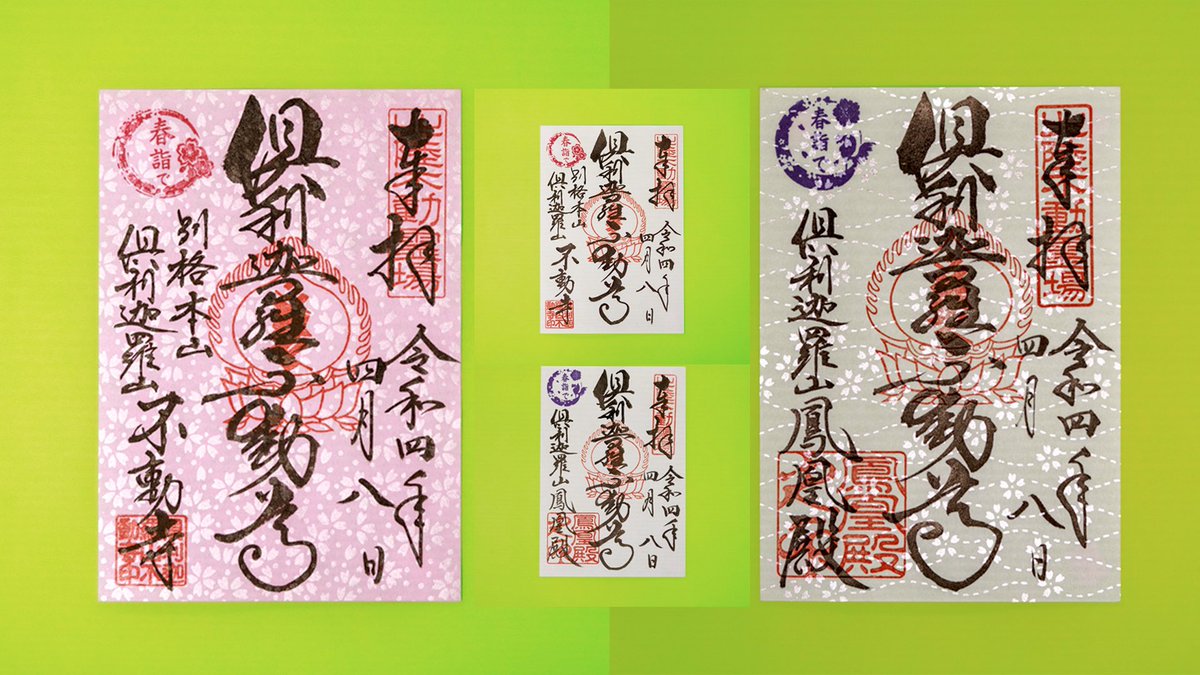 奉拝
令和四年
四月八日
倶利迦羅不動尊
春詣で
別格本山
倶利迦羅山不動寺
奉拝
令和四年
四月八日
倶利迦羅不動尊
春詣で
別格本山
倶利迦羅山不動寺
奉拝
令和四年
四月八日
倶利迦羅不動尊
春詣で
倶利迦羅山鳳凰殿
奉拝
令和四年
四月八日
倶利迦羅不動尊
春詣で
倶利迦羅山鳳凰殿